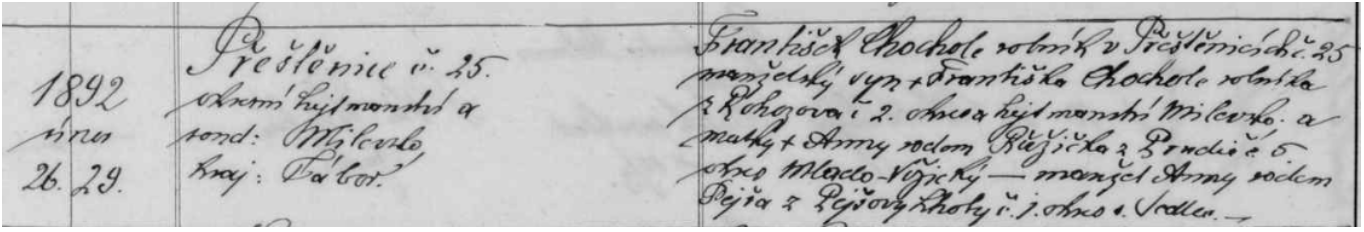 1892
únor
26. 29.
Přeštěnice č. 25.
okresní hejtmanství a
soud: Milevsko,
kraj: Tábor.
František Chochole rolník v Přeštěnicích č. 25
manželský syn + Františka Chochole rolníka
z Rohozova č 2. okres a hejtmanství Milevsko. a
matky + Anny rodem Růžička z
okres Mlado-Vožický — manžel Anny rodem
Pejša z Pejšovy Lhoty č. 1. okres s. Sedlec. —